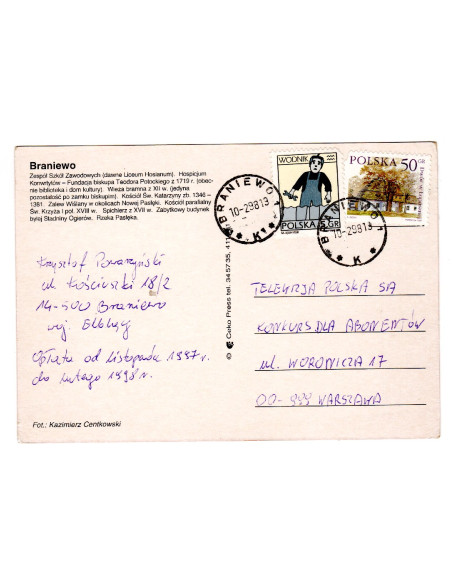 Braniewo
Zespół Szkół Zawodowych (dawne Liceum Hosianum). Hospicjum
Konwrtytów – Fundacja biskupa Teodora Potockiego z 1719 r. (obec-
nie biblioteka i dom kultury). Wieża bramna z XII w. (jedyna
pozostałość po zamku biskupim). Kościół Św. Katarzyny zb. 1346 –
1381. Zalew Wiślany w okolicach Nowej Pasłęki. Kościół parafialny
Św. Krzyża I poł. XVIII w. Spichlerz z XVII w. Zabytkowy budynek
byłej Stadniny Ogierów. Rzeka Pasłęka.
WODNIK
POLSKA 5 GR
POLSKA 50 GR
BRANIEWO 1
10-29813
* K *
BRANIEWO 1
10-29813
* K *
© Ceko Press tel. 34 57 35, 41
Krzysztof
ul. Kościuszki 18/2
14-500 Braniewo
woj. Elbląg
Opłata od listopada 1997 r.
do lutego 1998 r.
TELEWIZJA POLSKA SA
KONKURS DLA ABONENTÓW
ul. WORONICZA 17
00-999 WARSZAWA
Fot.: Kazimierz Centkowski